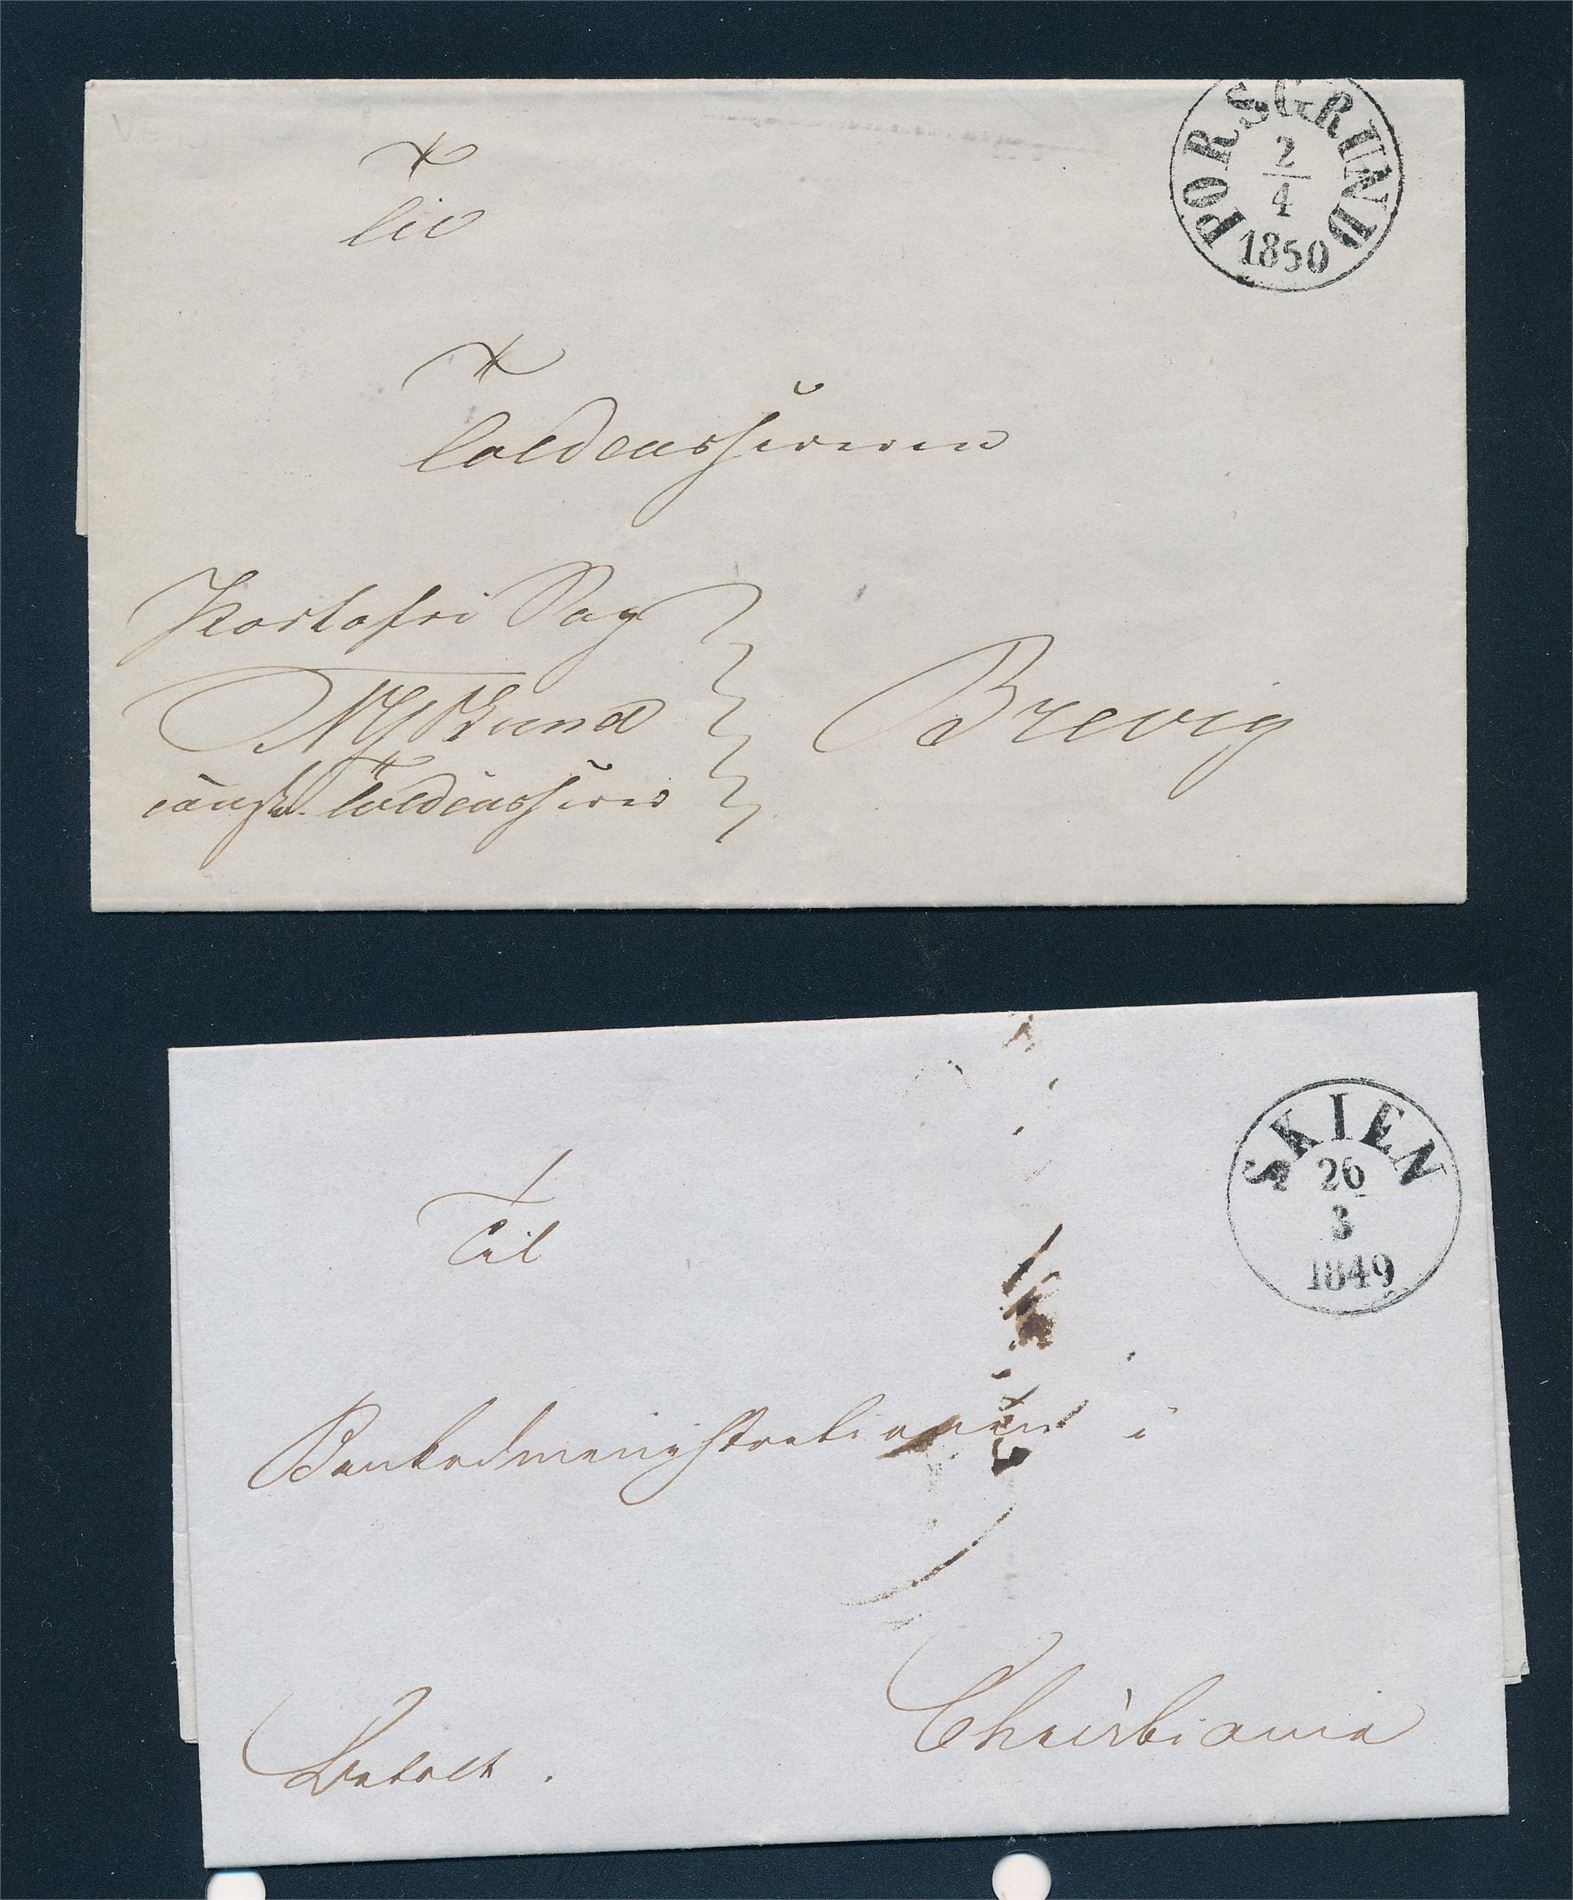 PORSGRUND
2
4
1850
Til
Toldcassereren
Portofri Sag
Brevig
Toldcasserer
SKIEN
26
3
1849
Til
Bankadministrationen i
Christiania
Betalt.